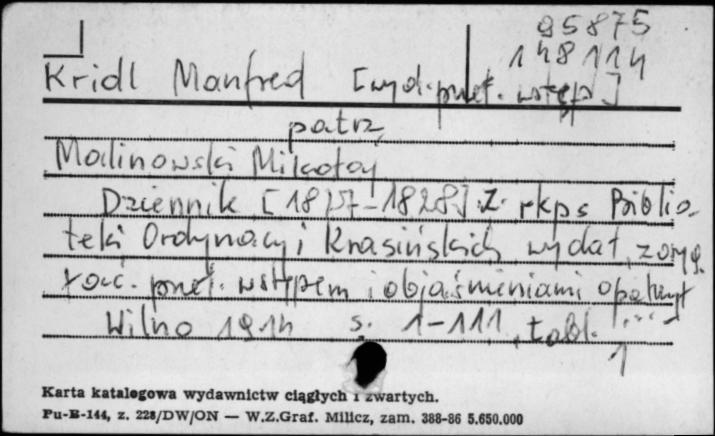 95875
148114
Kridl Manfred [wyd. przet. wstęp]
patrz
Malinowski Mikołaj
Dziennik [1827-1828]. Z rkps Biblio-
teki Ordynacyi Krasińskich wydał, z oryg.
rosc. przet. wstępem i objaśnieniami opatrzył...
Wilno 1914 s. 1-111, tabl. 1
Karta katalogowa wydawnictw ciągłych i zwartych.
Pu-B-144, z. 228/DW/ON — W.Z.Graf. Milicz, zam. 388-86 5.650.000